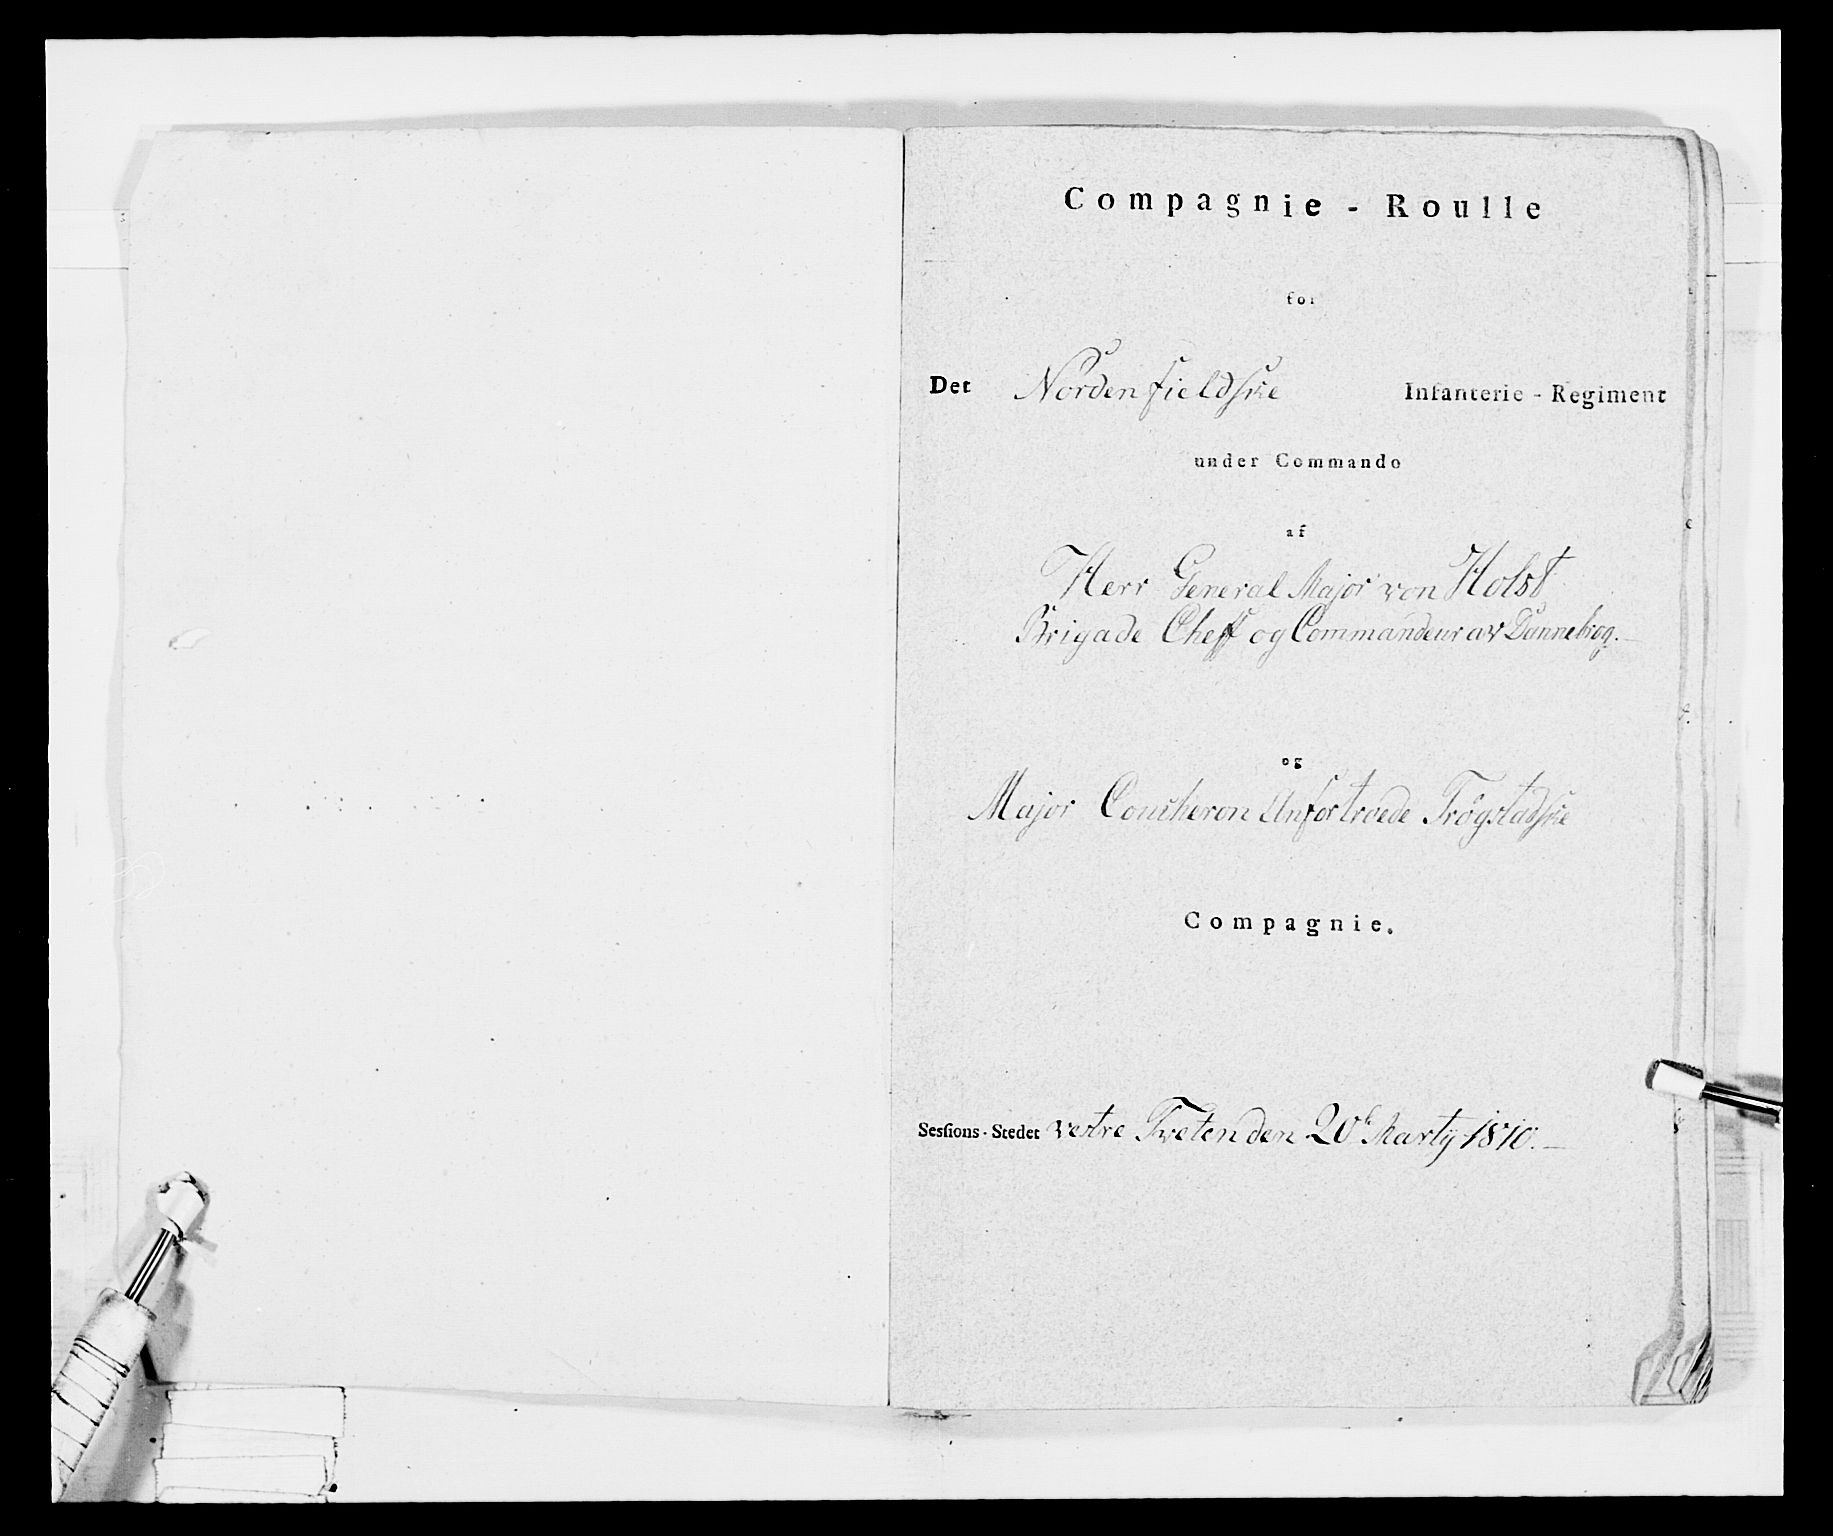 Compagnie - Roulle
for
Det Nordenfieldske Infanterie - Regiment
under Commando
af
Herr General Major von Holst
Brigade Cheff og Commandeur av Dannebrog.
og
Major Coucheron Anfortroede Trøgstadske
Compagnie.
Sessions-Stedet vestre Tveten den 20de Marty 1810.